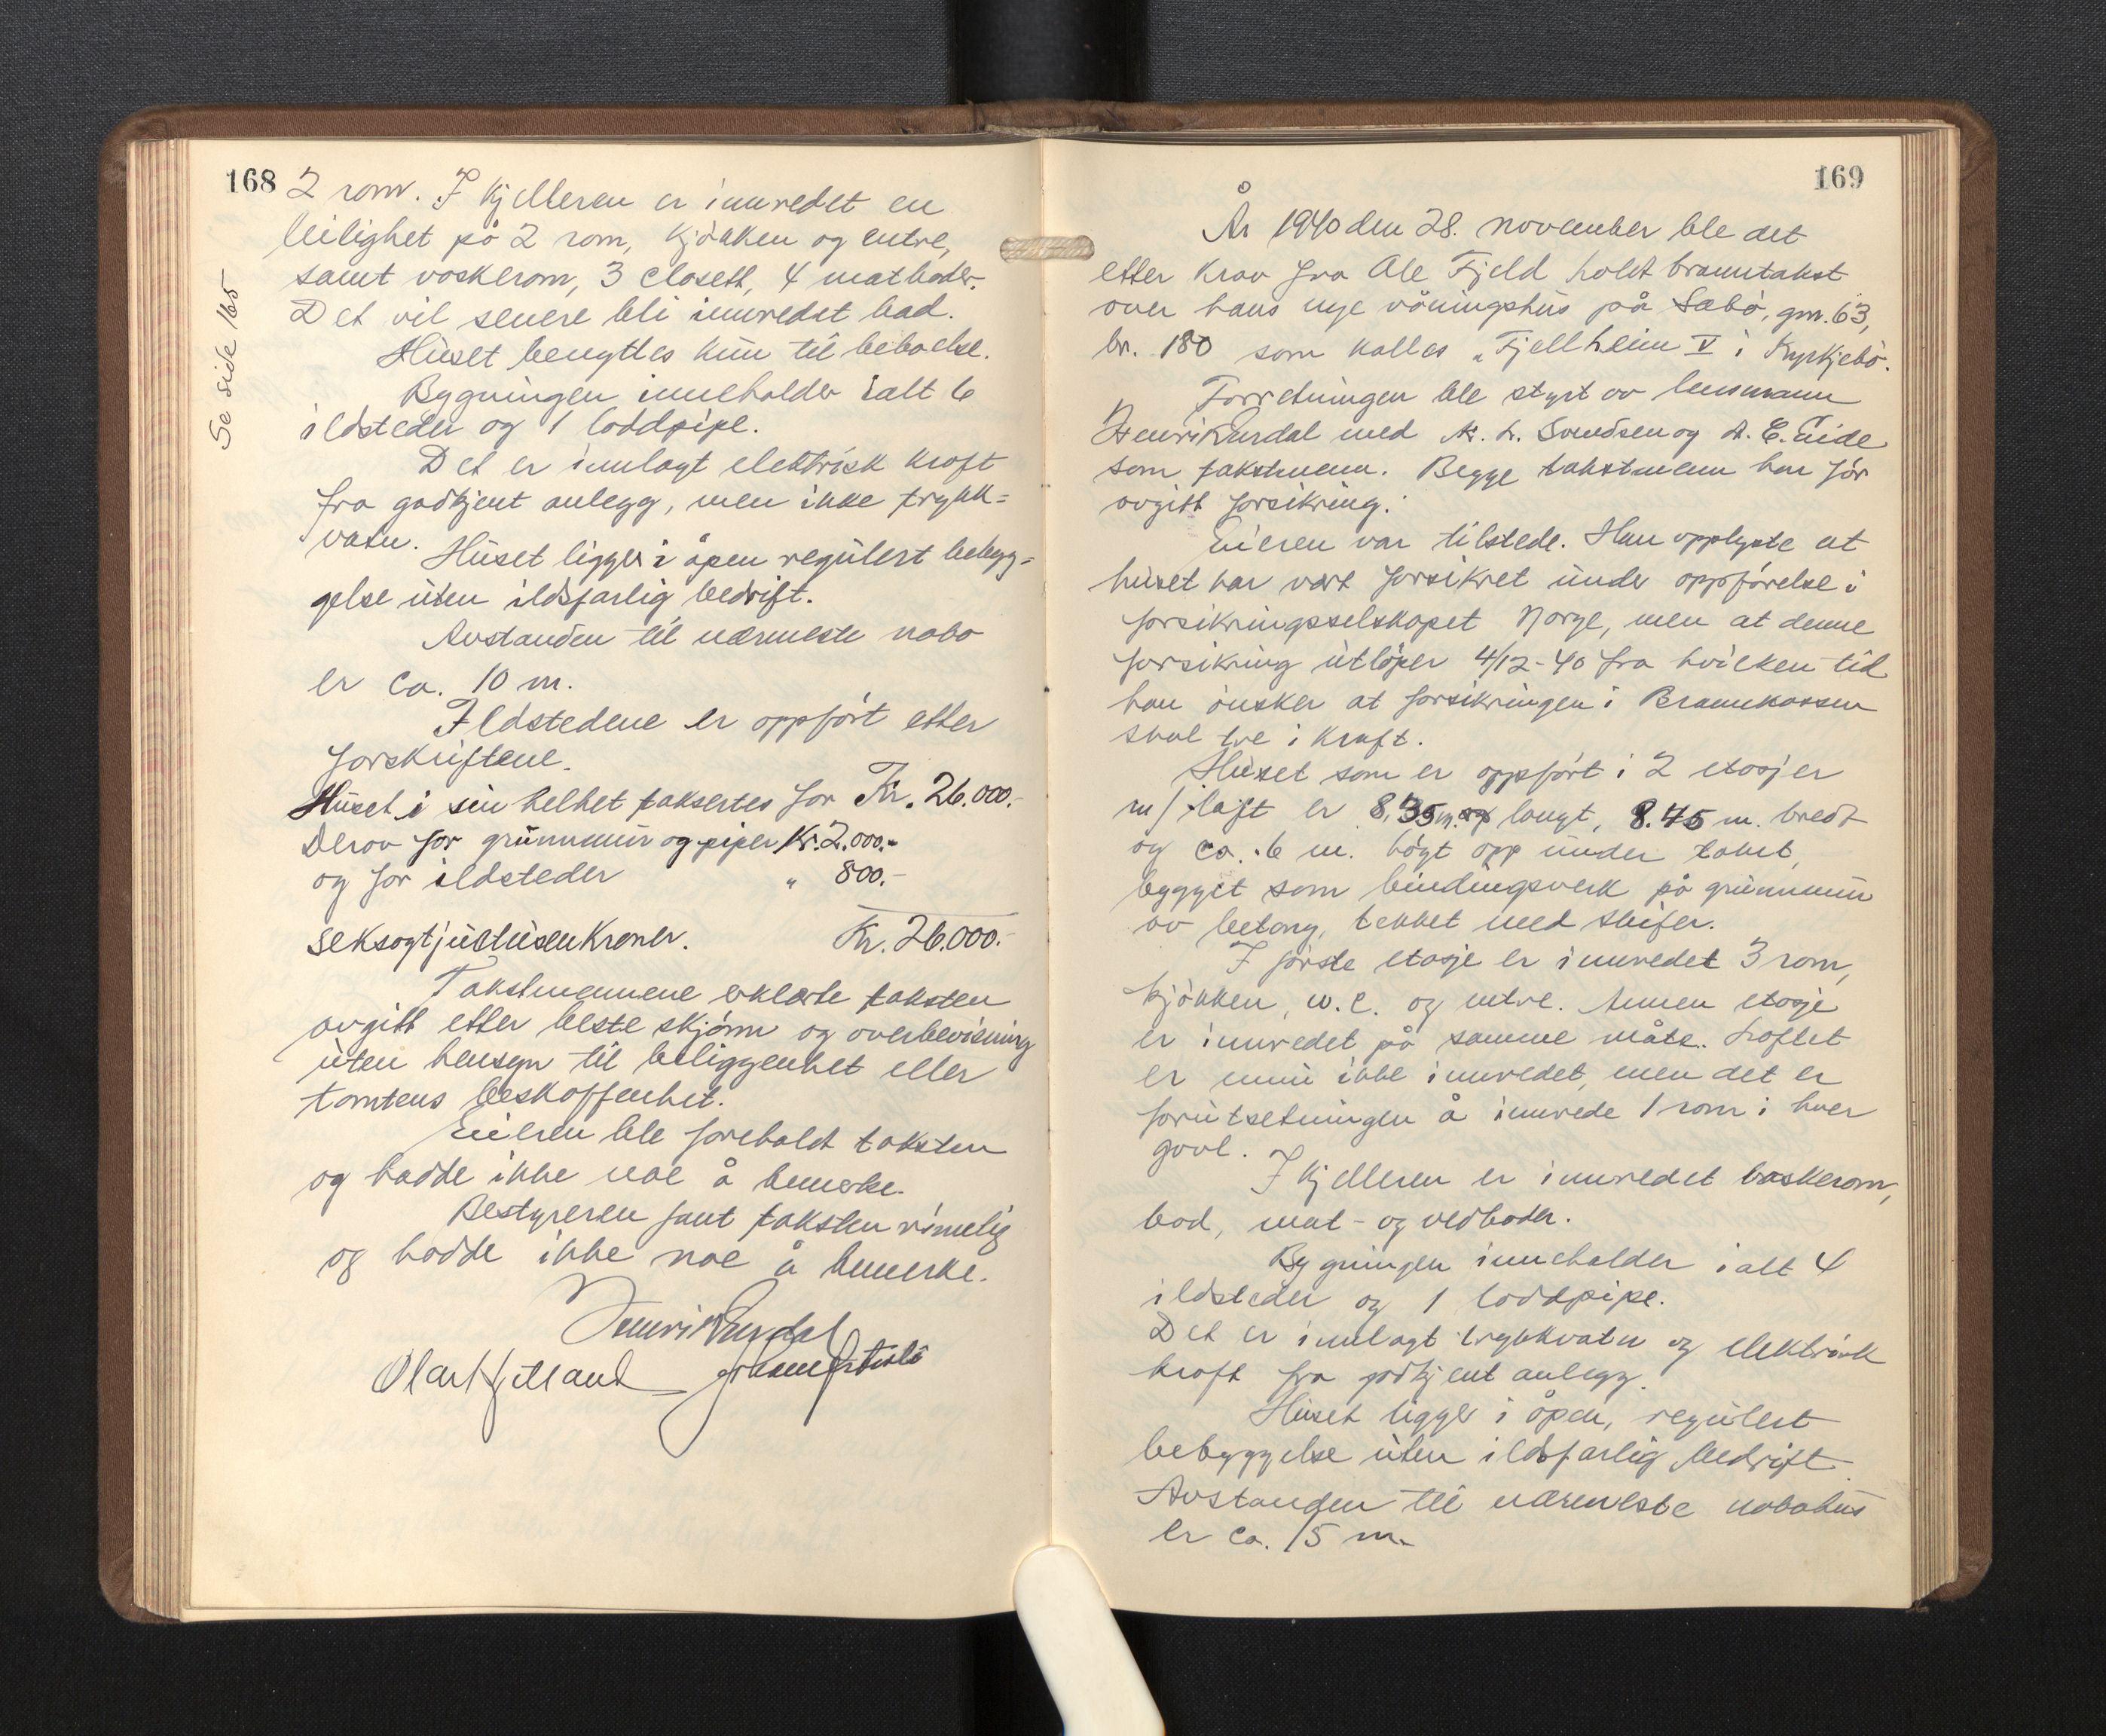 168
Se side 165
2 rom. I kjelleren er innredet en
leilighet på 2 rom, kjøkken og entre,
samt vaskerom, 3 closett, 4 matboder.
Det vil senere bli innredet bad.
Huset benyttes kun til beboelse.
Bygningen inneholder ialt 6
ildsteder og 1 loddpipe.
Det er innlagt elektrisk kraft
fra godkjent anlegg, men ikke trykk=
vatn.
Huset ligger i åpen regulert bebyg=
gelse uten ildsfarlig bedrift.
Avstanden til nærmeste nabo
er ca. 10 m.
Ildstedene er oppført etter
forskriftene.
Huset i sin helhet taksertes for Kr. 26.000.-
Derav for grunnmur og piper Kr. 2.000.-
og for ildsteder " 800.-
seksogtjuetusen kroner. Kr. 26.000.-
Takstmennene erklærte taksten
avgitt etter beste skjønn og overbevisning
uten hensyn til beliggenhet eller
tomtens beskaffenhet.
Eieren ble foreholdt taksten
og hadde ikke noe å bemerke.
Bestyreren fant taksten rimelig
og hadde ikke noe å bemerke.
Olav Hjetland
169
År 1940 den 28. november ble det
etter krav fra Ole Fjeld holdt branntakst
over hans nye våningshus på Sæbø, gnr. 63,
br. 180 som kalles "Fjellheim V i Kyrkjebø.
Forretningen ble styrt av lensmann
Henrik Surdal med A. L. Svendsen og A. E. Eide
som takstmenn. Begge takstmenn har før
avgitt forsikring.
Eieren var tilstede. Han opplyste at
huset har vært forsikret under oppførelse i
forsikringsselskapet Norge, men at denne
forsikring utløper 4/12-40 fra hvilken tid
han ønsker at forsikringen i Brannkassen
skal tre i kraft.
Huset som er oppført i 2 etasjer
m/ loft er 8,35 m. langt, 8.45 m. bredt
og ca. 6 m. høgt opp under taket,
bygget som bindingsverk på grunnmur
av betong, tekket med skifer.
I første etasje er innredet 3 rom,
kjøkken, w.c. og entre. Annen etasje
er innredet på samme måte. Loftet
er ennu ikke innredet, men det er
forutsetningen å innrede 1 rom i hver
gavl.
I kjelleren er innredet vaskerom,
bad, mat- og vedboder.
Bygningen inneholder ialt 4
ildsteder og 1 loddpipe.
Det er innlagt trykkvatn og elektrisk
kraft fra godkjent anlegg.
Huset ligger i åpen, regulert
bebyggelse uten ildsfarlig bedrift.
Avstanden til nærmeste nabohus
er ca. 15 m.